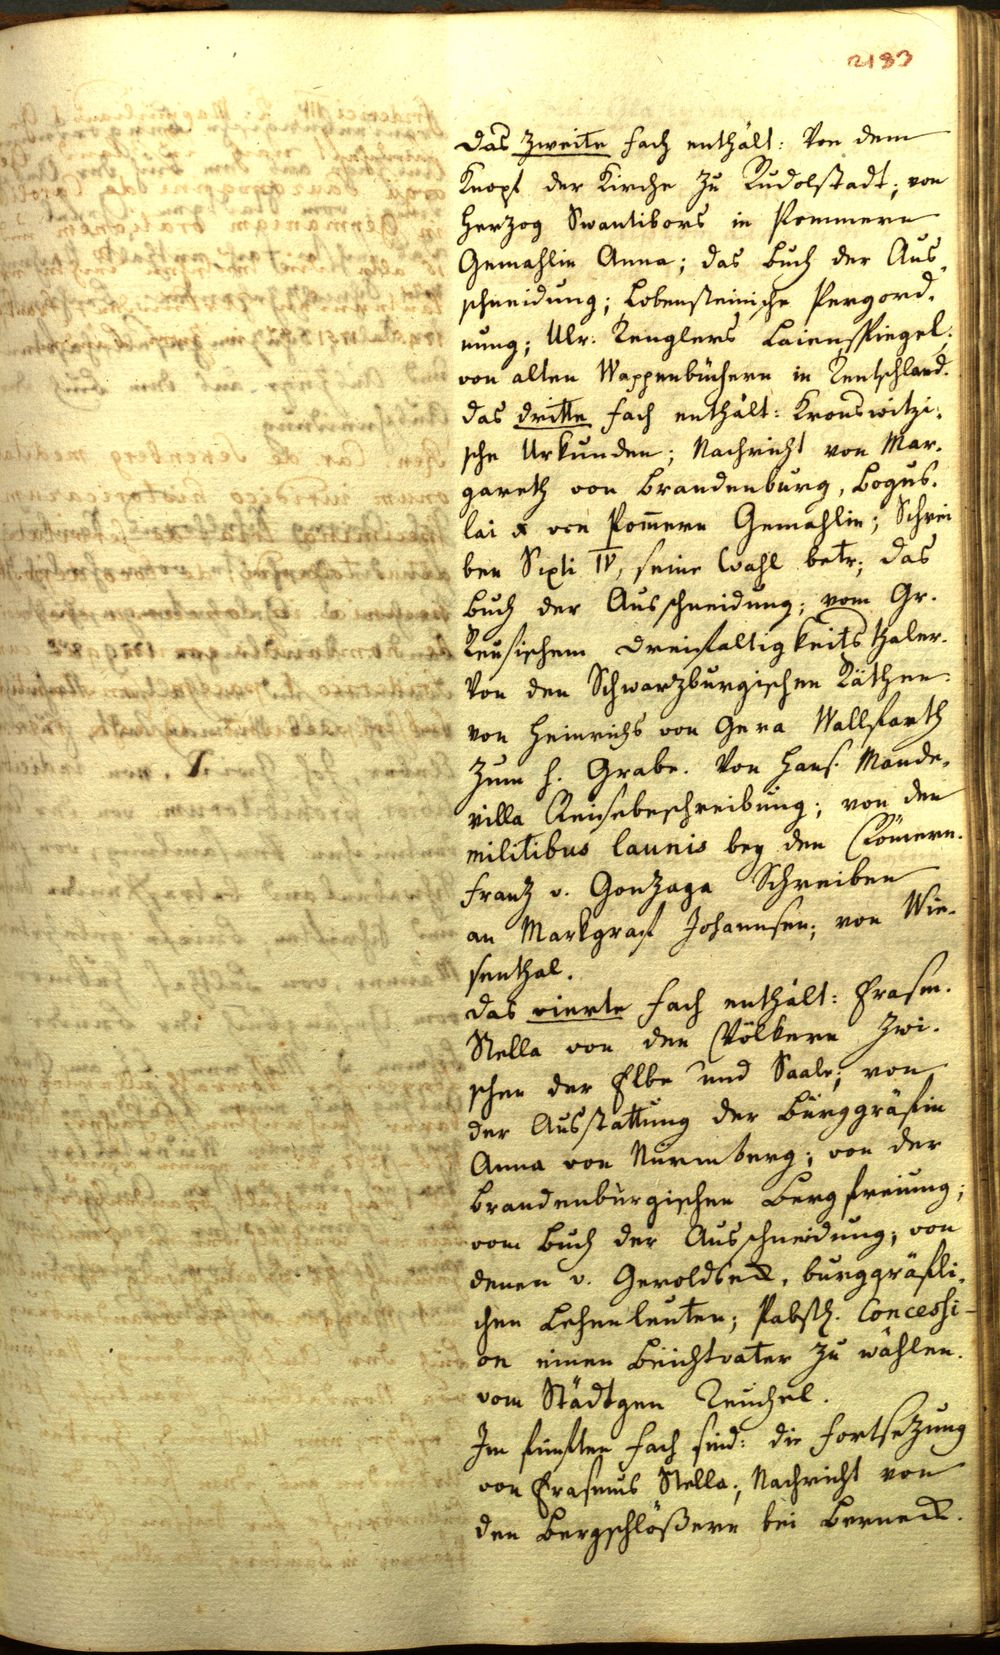 2183
Das zweite Fach enthält: Von dem
Knopf der Kirche zu Rudolstadt; von
Herzog Swantibors in Pommern
Gemahlin Anna; das Buch der Aus-
schneidung; Lobensteinische Bergord-
nung; Ulr: Tenglers Laienspiegel;
von alten Wappenbüchern in Teutschland.
Das dritte Fach enthält: Cronswitzi-
sche Urkunden; Nachricht von Mar-
gareth von Brandenburg, Bogus-
lai X von Pom̄ern Gemahlin; Schrei
ben Sixti IV, seine Wahl betr; das
Buch der Ausschneidung; vom Gr.
Reusischem Dreifaltigkeitsthaler.
Von den Schwarzburgischen Räthen.
von Heinrichs von Gera Wallfarth
zum h. Grabe. Von Hans Mande-
villa Reisebeschreibung; von den
militibus launis bey den Römern.
Franz v. Gonzaga Schreiben
an Markgraf Johannsen; von Wie-
senthal.
Das vierte Fach enthält: Erasm.
Stella von den Völkern zwi-
schen der Elbe und Saale; von
der Ausstattung der Burggräfin
Anna von Nürmberg; von der
Brandenburgischen Bergfreiung;
vom Buch der Ausschneidung; von
denen v. Geroldseck, burggräfli-
chen Lehenleuten; Pabstl. Concessi-
on einen Beichtvater zu wählen.
vom Städtgen Teuchel.
Im fünften Fach sind: die Fortsezung
von Erasmus Stella; Nachricht von
den Bergschlößern bei Berneck.